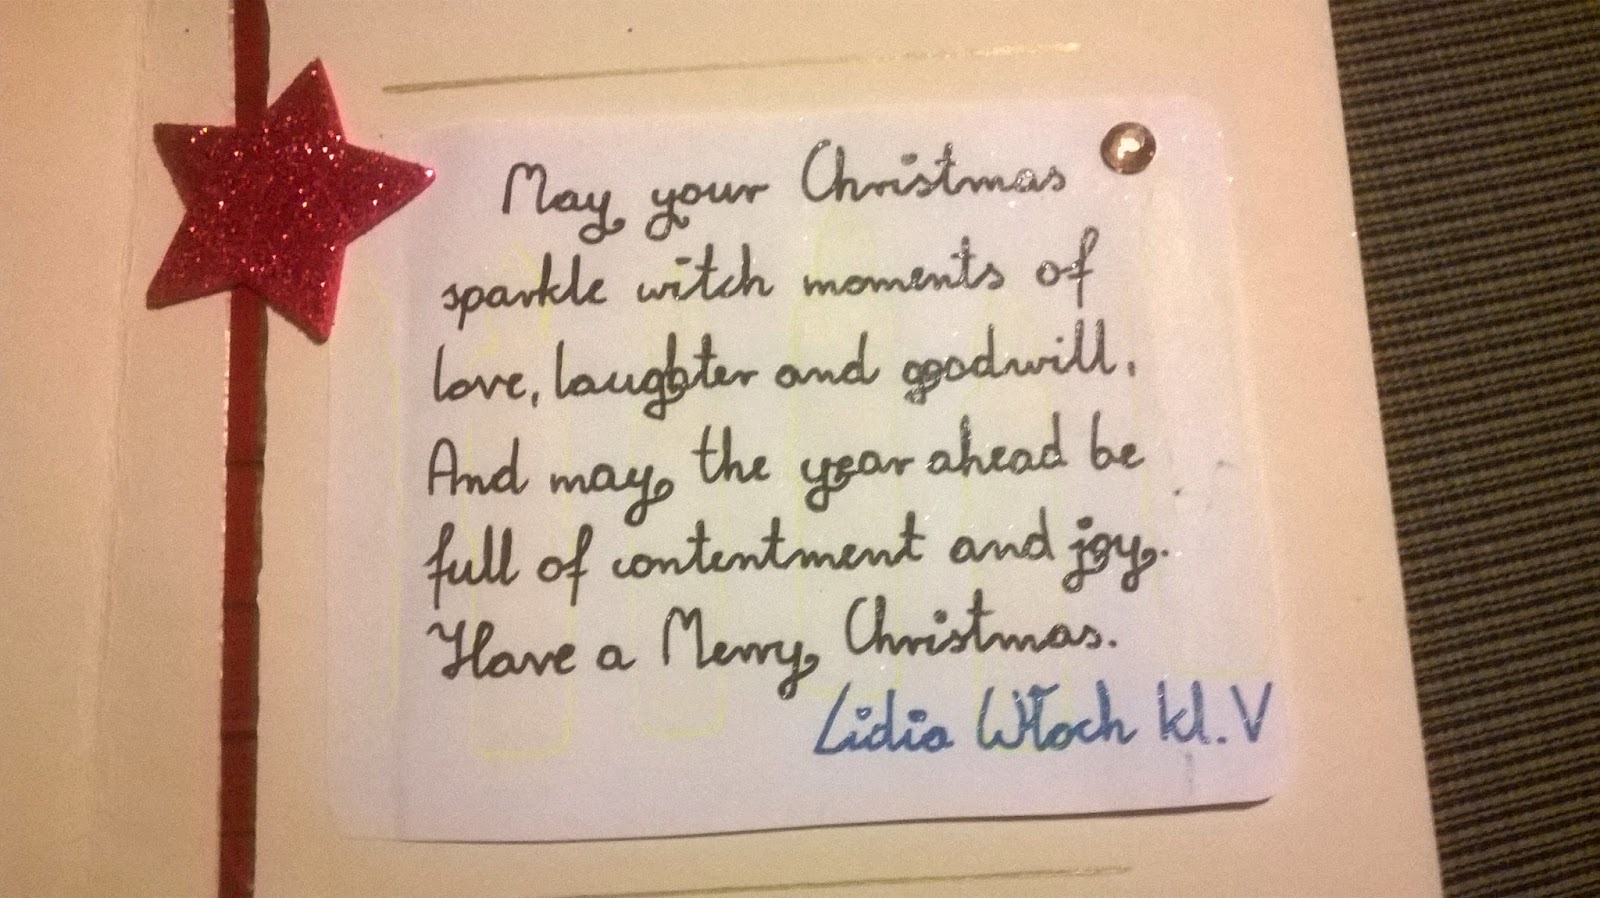 May your Christmas
sparkle witch moments of
love, laughter and goodwill.
And may the year ahead be
full of contentment and joy.
Have a Merry Christmas.
Lidia Włoch kl. V